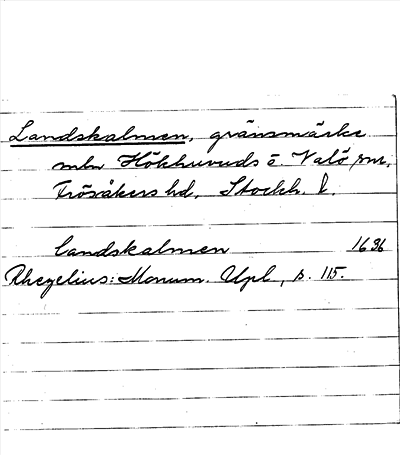 Landskalmen, gränsmärke
mln Hökhuvuds o. Valö snr,
Frösåkers hd, Stockh. l.
landskalmen 1636
Rhezelius: Monum. Upl., s. 115.